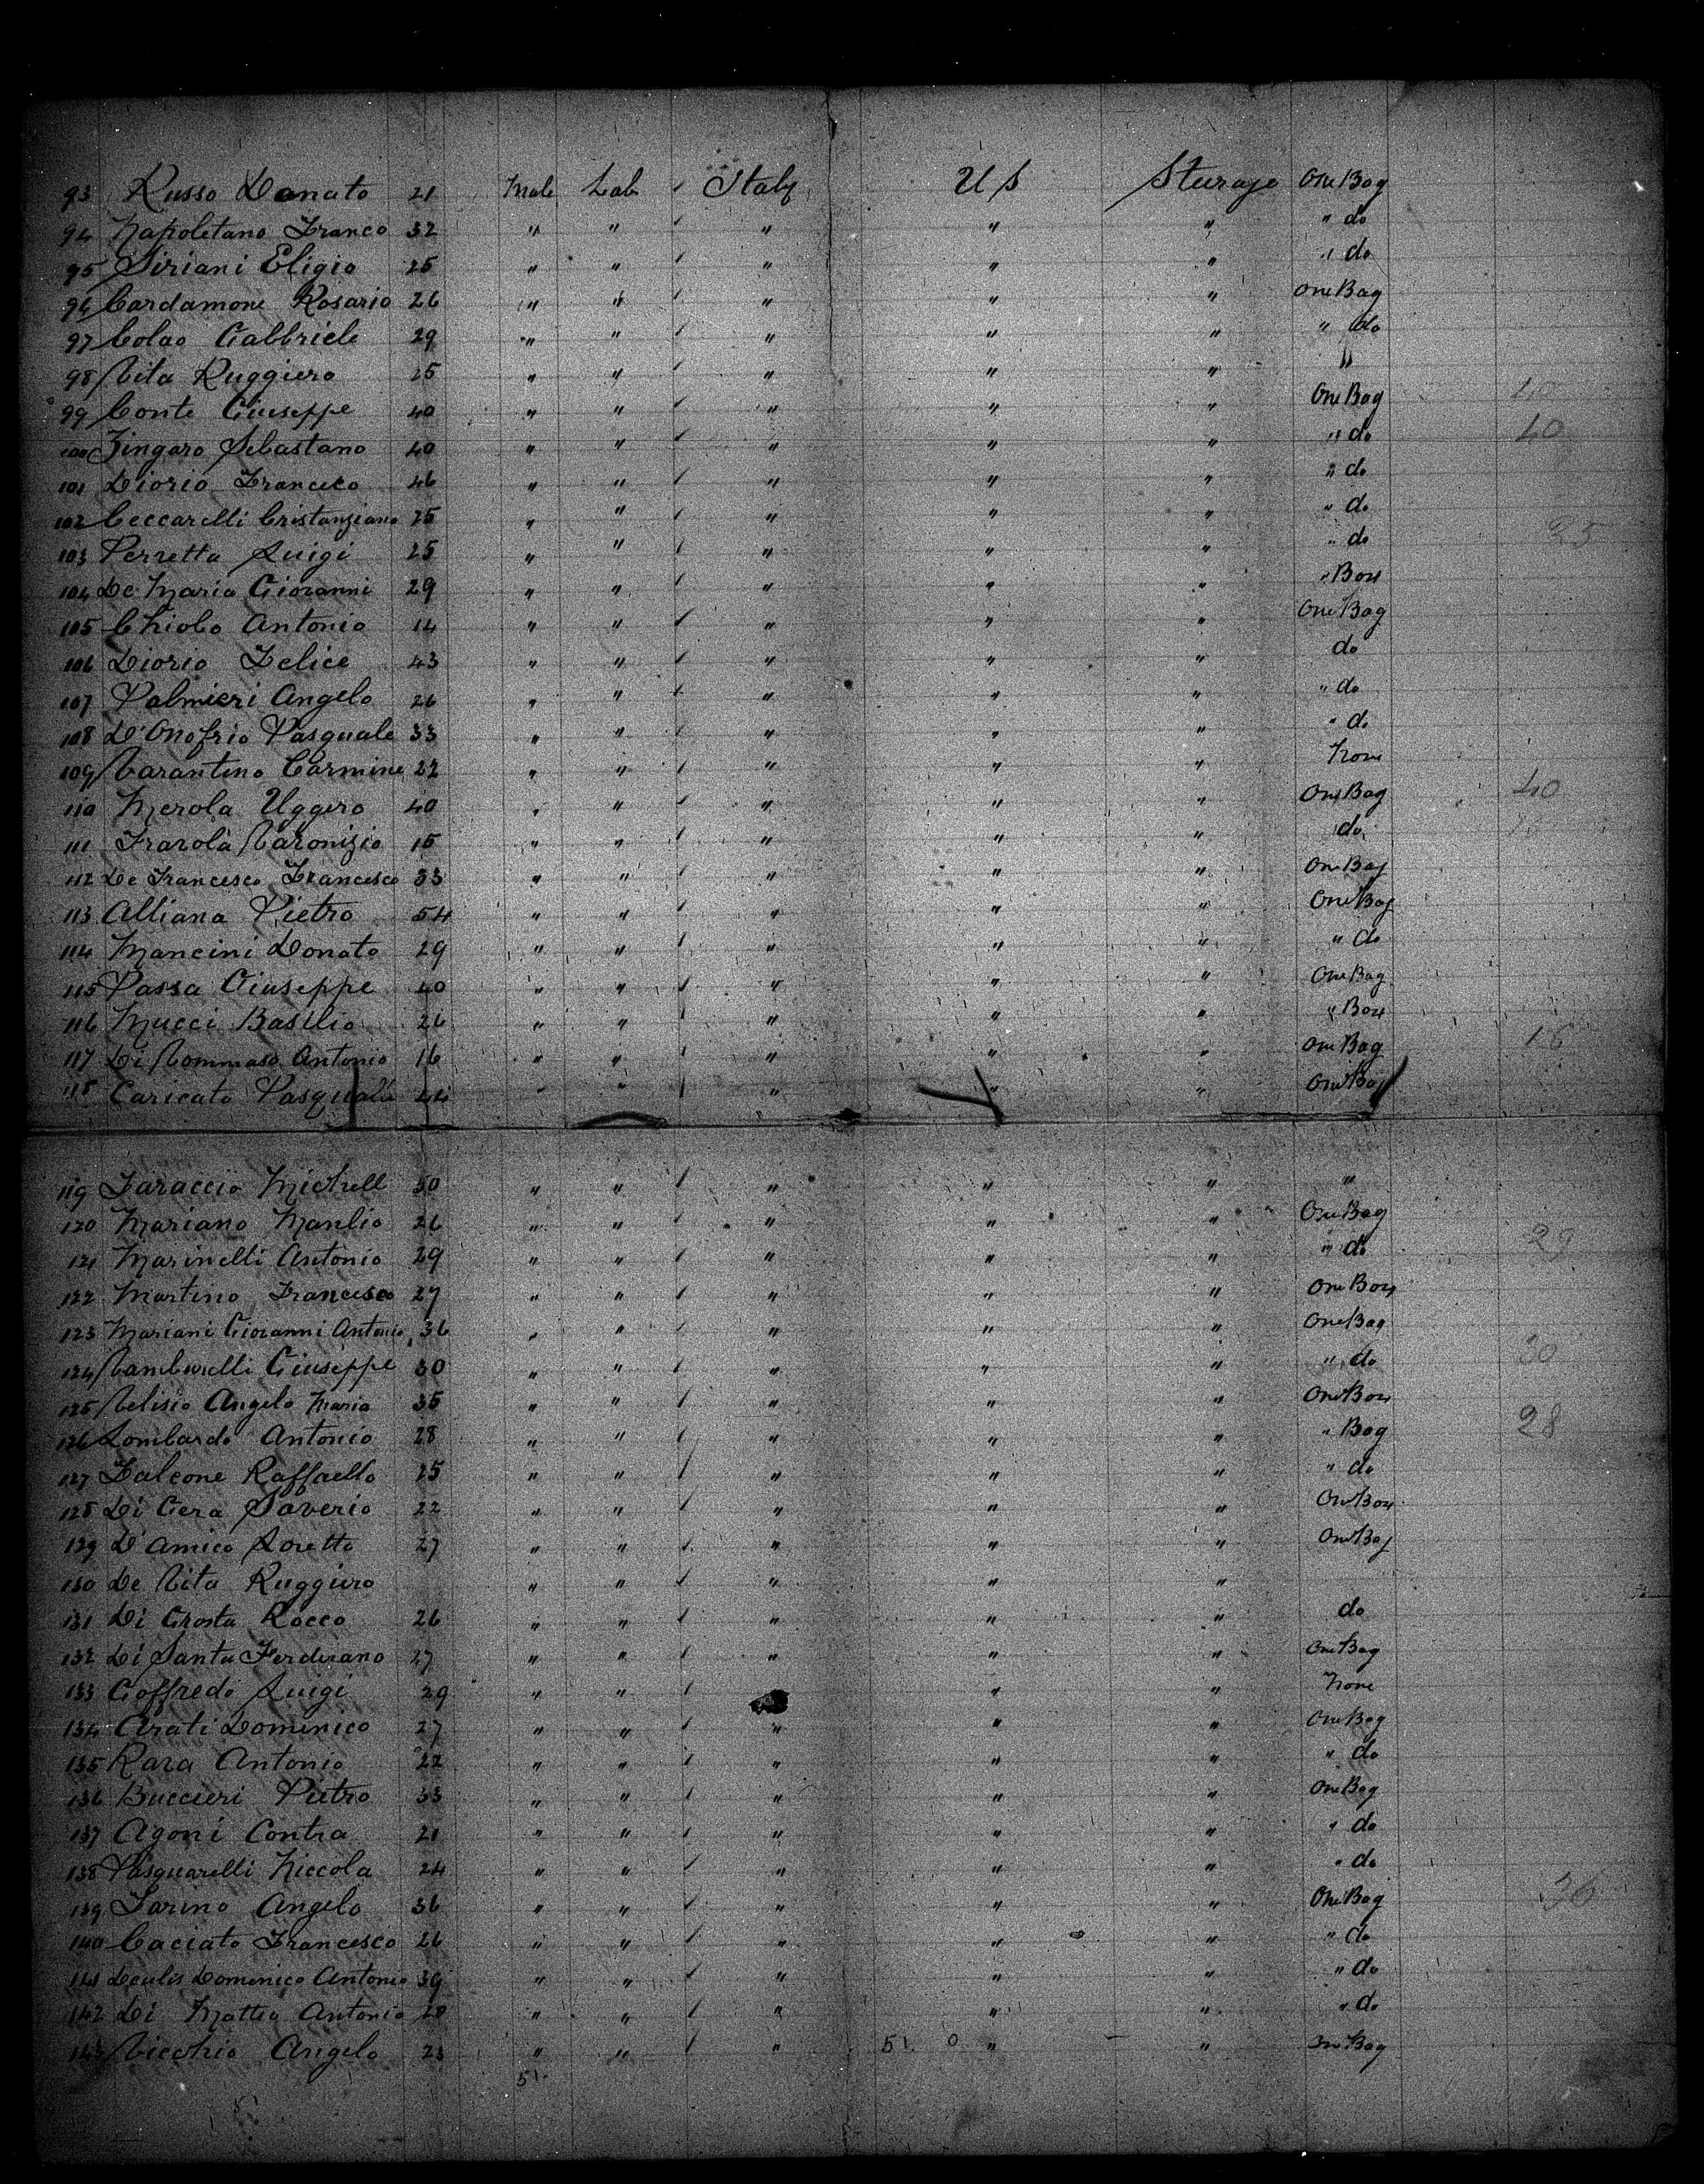 93 Russo Donato 21 Male Lab ✓ Italy U S Sturage One Bag
94 Napoletano Franco 32 " " ✓ " " " " do
95 Siriani Eligio 25 " " ✓ " " " " do
96 Cardamone Rosario 26 " " ✓ " " " One Bag
97 Colao Gabbriele 29 " " ✓ " " " " do
98 Vita Ruggiero 25 " " ✓ " " " "
99 Conte Giuseppe 40 " " ✓ " " " One Bag 40
100 Zingaro Sebastano 40 " " ✓ " " " " do 40
101 Diorio Francesco 46 " " ✓ " " " " do
102 Ceccarelli Cristanziano 25 " " ✓ " " " " do
103 Perretta Luigi 25 " " ✓ " " " " do 25
104 De Maria Giovanni 29 " " ✓ " " " " Box
105 Chiolo Antonio 14 " " ✓ " " " One Bag
106 Diorio Felice 43 " " ✓ " " " do
107 Palmieri Angelo 26 " " ✓ " " " " do
108 D'Onofrio Pasquale 33 " " ✓ " " " " do
109 Tarantino Carmine 22 " " ✓ " " " None
110 Merola Uggero 40 " " ✓ " " " One Bag 40
111 Frarola Taronizio 15 " " ✓ " " " do
112 De Francesco Francesco 33 " " ✓ " " " One Bag
113 Alliana Pietro 54 " " ✓ " " " One Bag
114 Mancini Donato 29 " " ✓ " " " " do
115 Passa Giuseppe 40 " " ✓ " " " One Bag
116 Mucci Basilio 26 " " ✓ " " " " Box
117 Di Tommaso Antonio 16 " " ✓ " " " One Bag 16
118 Caricato Pasquale 44 " " ✓ " " " One Bag
119 Faraccio Michell 50 " " ✓ " " " "
120 Mariano Manlio 26 " " ✓ " " " One Bag
121 Marinelli Antonio 29 " " ✓ " " " " do 29
122 Martino Francesco 27 " " ✓ " " " One Box
123 Mariani Giovanni Antonio 36 " " ✓ " " " One Bag
124 Tamburelli Giuseppe 30 " " ✓ " " " " do 30
125 Telisio Angelo Maria 35 " " ✓ " " " One Box
126 Lombardo Antonio 28 " " ✓ " " " " Bag 28
127 Falcone Raffaello 25 " " ✓ " " " " do
128 Di Gera Saverio 22 " " ✓ " " " One Box
129 D'Amico Loretto 27 " " ✓ " " " One Bag
130 De Vita Ruggiero " " ✓ " " "
131 Di Crosta Rocco 26 " " ✓ " " " do
132 Di Santa Ferdinano 27 " " ✓ " " " One Bag
133 Goffredo Luigi 29 " " ✓ " " None
134 Arati Domenico 27 " " ✓ " " " One Bag
135 Rara Antonio 22 " " ✓ " " " " do
136 Buccieri Pietro 33 " " ✓ " " " One Bag
137 Agoni Contra 21 " " ✓ " " " " do
138 Pasquarelli Niccola 24 " " ✓ " " " " do
139 Farino Angelo 36 " " ✓ " " " One Bag 36
140 Caciato Francesco 26 " " ✓ " " " " do
141 Deulis Domenico Antonio 39 " " ✓ " " " " do
142 Di Matteo Antonio 20 " " ✓ " " " " do
143 Vicchio Angelo 23 " " ✓ " 51. 0 " " One Bag
51.